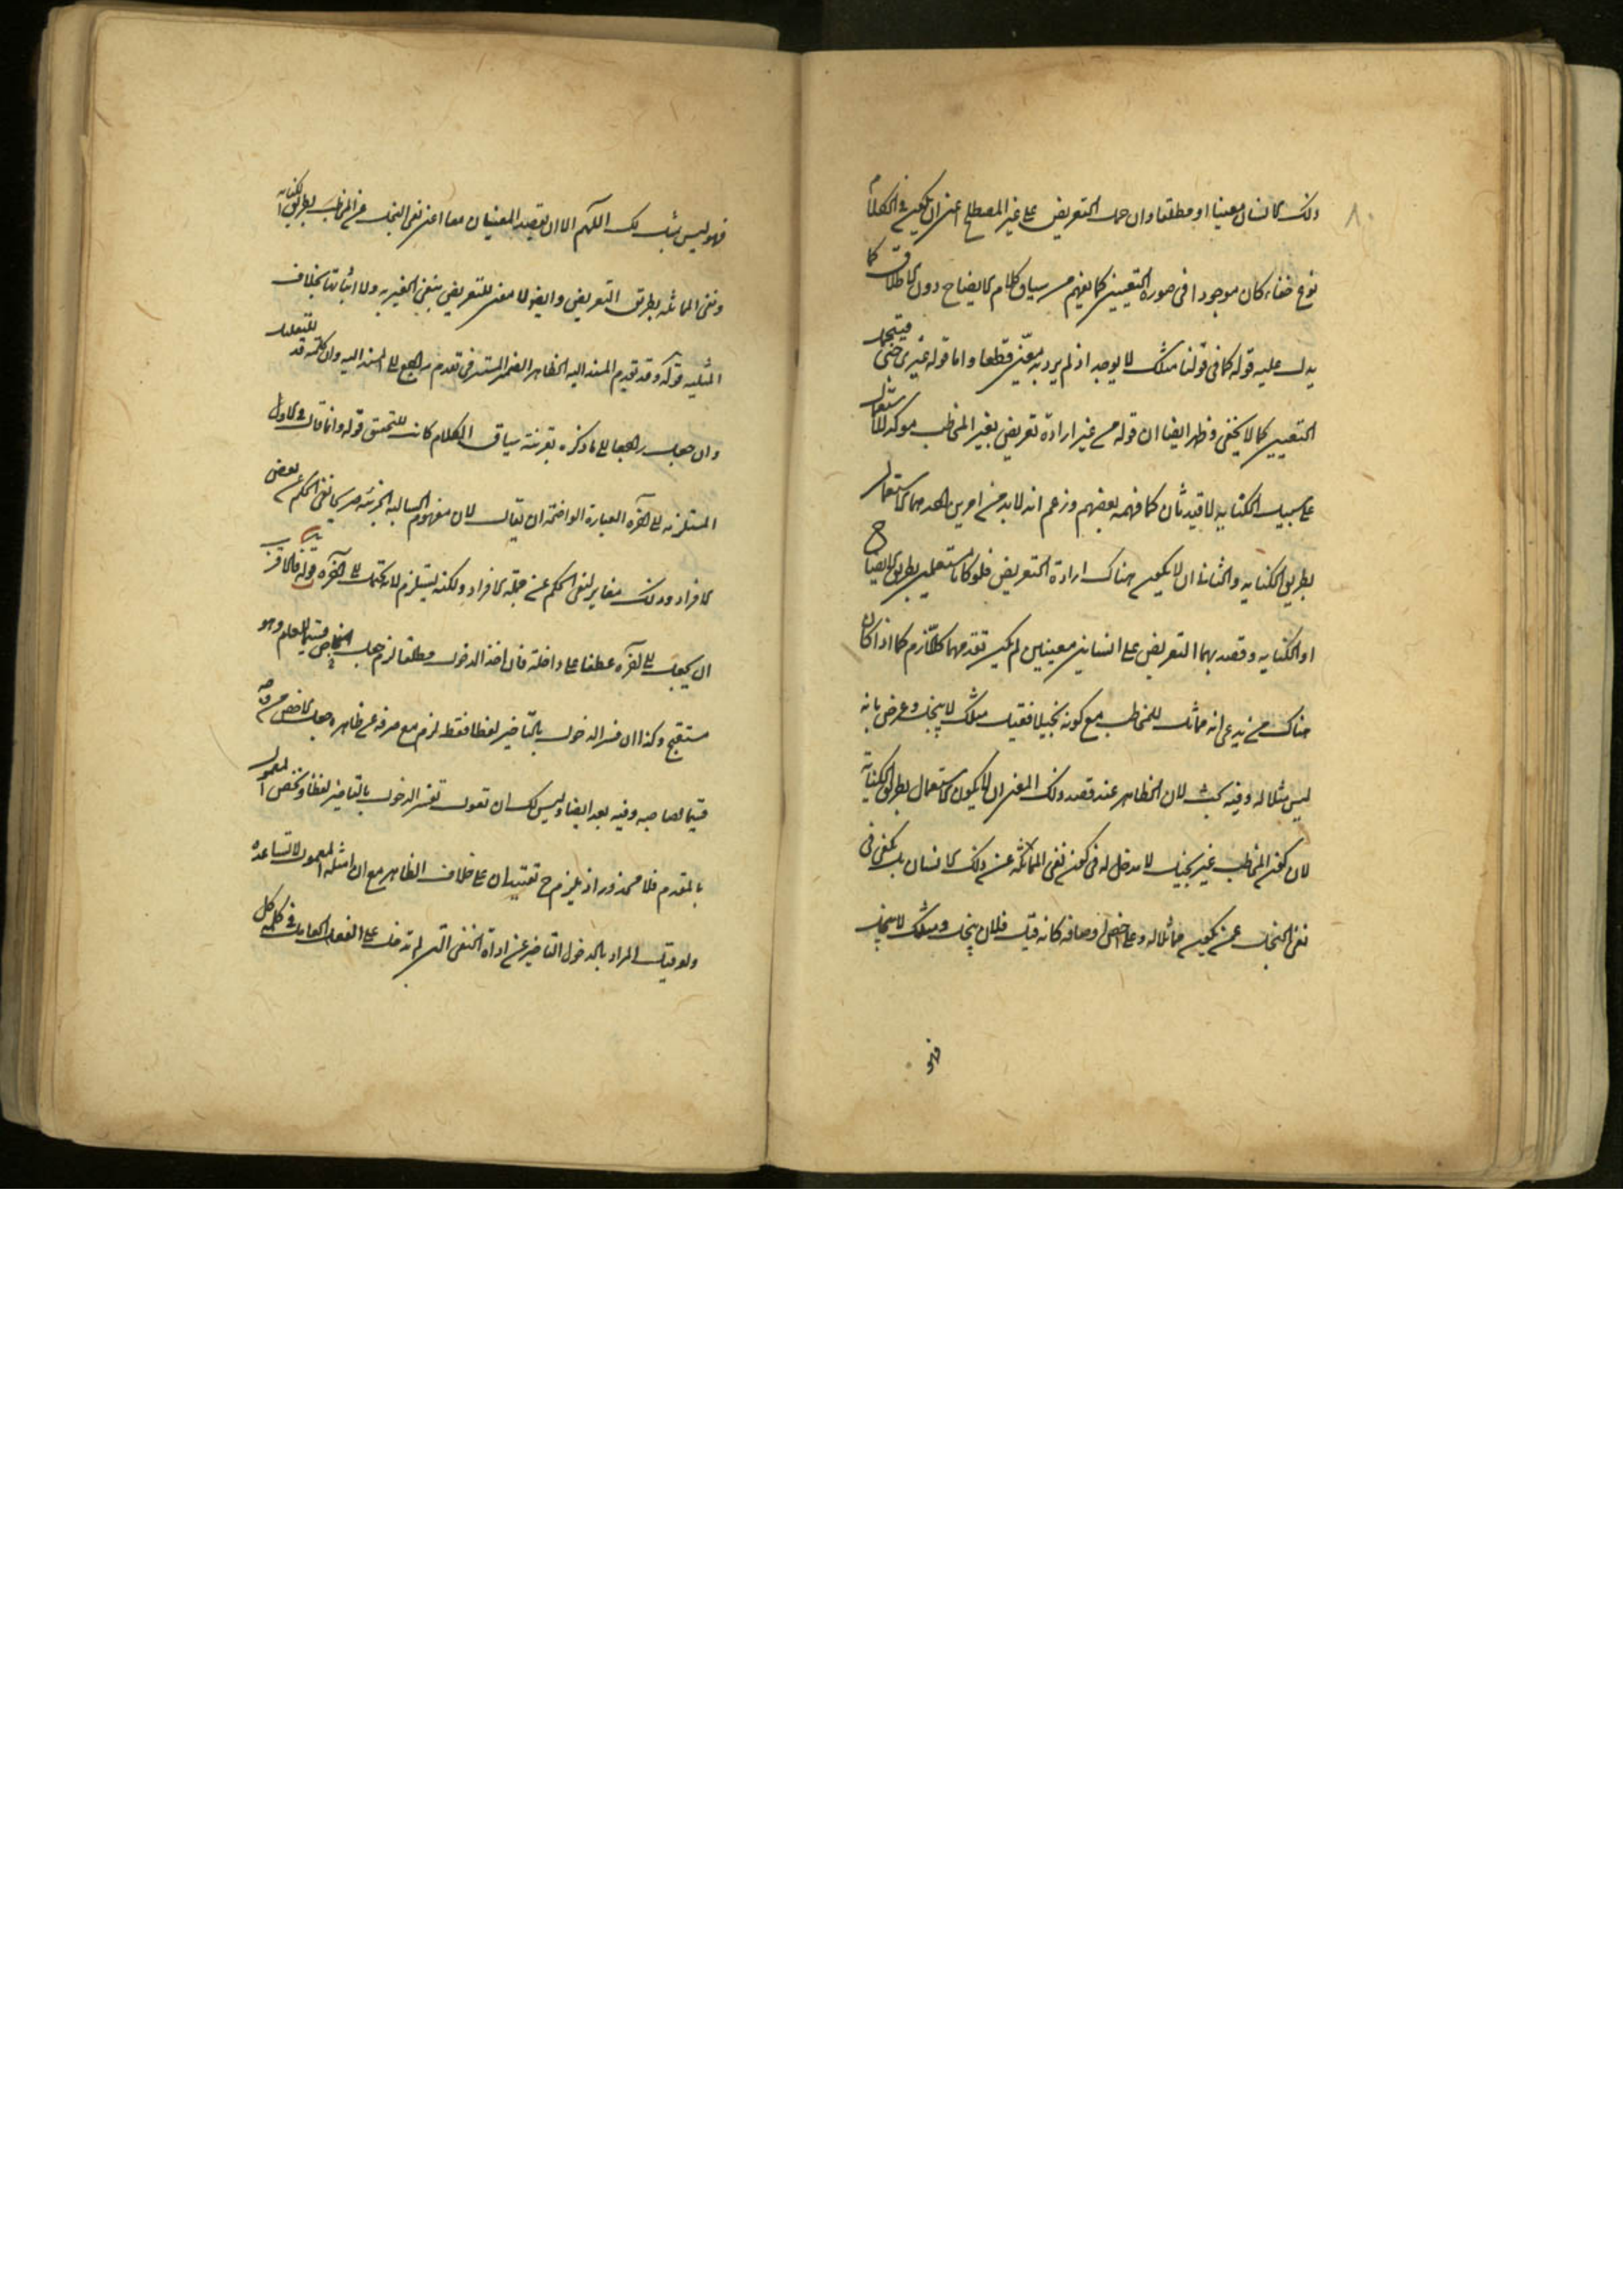 ٨٠
ذلك الانسان معينا او مطلقا وان حمل التعريض على غير المصطلح اعنى ان يكون في الكلام
نوع خفاء كان موجودا فى صورة التعيين كما يفهم من سياق كلام الايضاح دون الاطلاق كما
يدل عليه قوله كما فى قولنا مثلك لا يوجد اذ لم يرد به معين قطعا واما قوله غيرى جنى فيحتمل
التعيين كما لا يخفى وظهر ايضا ان قوله من غير ارادة تعريض بغير المخاطب مؤكد للاستعمال
على سبيل الكناية لا قيد ثان كما فهمه بعضهم وزعم انه لا بد من امرين احدهما الاستعمال
بطريق الكناية والثانى ان لا يكون هناك ارادة التعريض فلو كانا مستعملين بطريق الايضاح
او الكناية وقصد بهما التعريض على انسانين معينين لم يكن تقديمهما كاللازم كما اذا كان
هناك من يدعى انه مماثل للمخاطب مع كونه بخيلا فقيل مثلك لا يبخل وعرض بانه
ليس مثلا له وفيه بحث لان الظاهر عند قصد ذلك المعنى ان لا يكون الاستعمال بطريق الكناية
لان كون المخاطب غير بخيل لا مدخل له فى كون نفى المماثلة عن ذلك الانسان بل يكفى فى
نفى البخل عمن يكون مماثلا له وعلى اخص اوصافه كانه قيل فلان يبخل ومثلك لا يبخل
فهو
فهو ليس مثلك اللهم الا ان يقصد المعنيان معا اعنى نفى البخل عن المخاطب بطريق الكناية
ونفى المماثلة بطريق التعريض وايضا لا معنى للتعريض بنفى الغيرية ولا اثباتها بخلاف
المثلية قوله وقد تقدم المسند اليه الظاهر الضمير المستتر فى تقدم راجع الى المسند اليه وان كلمة قد للتقليل
وان جعل راجعا الى ما ذكره بقرينة سياق الكلام كانت للتحقيق قوله وانما قال فى الاول
المستلزمة الى آخره العبارة الواضحة ان يقال لان مفهوم السالبة الجزئية صريحا نفى الحكم عن بعض
الافراد وذلك مغاير لنفى الحكم عن جملة الافراد ولكنه يستلزم لانه يحتمل الى آخره قوله فالاقرب
ان يجعل الى آخره عطفا على داخلة فان اخذ الدخول مطلقا لزم جعل الخاص قسيما للعام وهو
مستقبح وكذا ان فسر الدخول بالتأخير لفظا فقط لزم مع صرفه عن ظاهره جعل الاخص من وجه
قسيما لصاحبه وفيه بعد ايضا وليس لك ان تقول تفسر الدخول بالتأخير لفظا وتخص المعمول
بالمقدم فلا محذور اذ يلزم ح تقييدان على خلاف الظاهر مع ان امثلة المعمول لا تساعده
ولو قيل المراد بالدخول التأخير عن اداة النفى التى لم تدخل على الفعل العامل فى كلمة كل